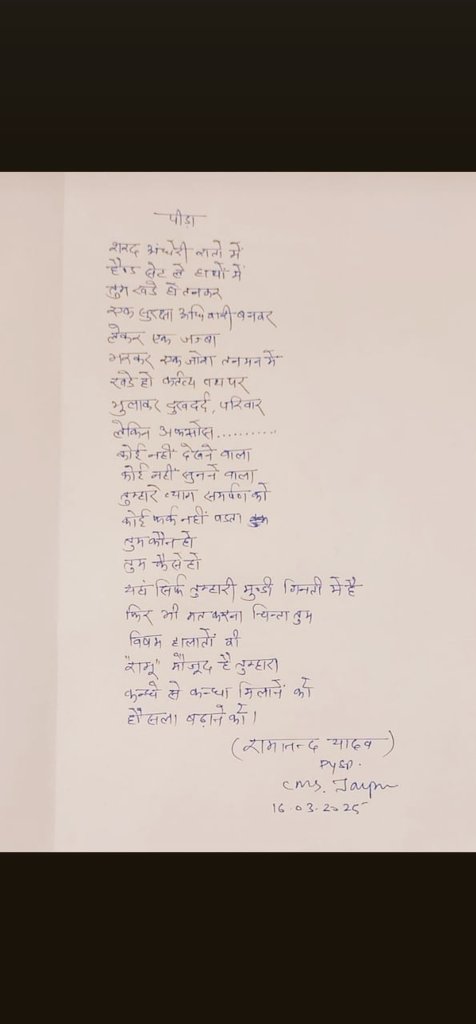 पीड़ा
शरद अंधेरी रातों में
हैण्ड सेट ले हाथों में
तुम खडे हो तनकर
एक सुरक्षा अधिकारी बनकर
लेकर एक जज्बा
भरकर एक जोश तनमन में
खडे हो कर्तव्य पथ पर
भुलाकर दुखदर्द, परिवार
लेकिन अफसोस...........
कोई नहीं देखने वाला
कोई नहीं सुनने वाला
तुम्हारे त्याग समर्पण को
कोई फर्क नहीं पडता
तुम कौन हो
तुम कैसे हो
यहां सिर्फ तुम्हारी मुन्डी गिनती में है
फिर भी मत करना चिन्ता तुम
विषम हालातों की
"रामू" मौजूद है तुम्हारा
कन्धे से कन्धा मिलाने को
हौंसला बढाने को।
(रामानन्द यादव)
CMS.
16.03.2025